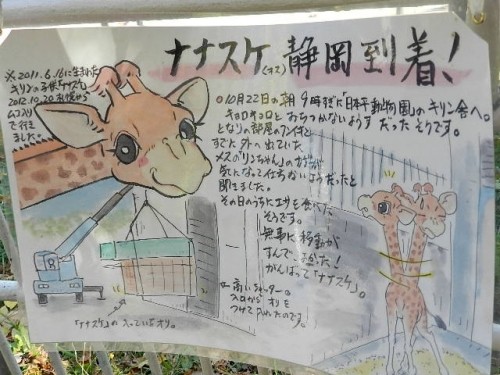 ナナスケ(オス)静岡到着！
※2011.6.16に生まれた
キリンの子供ナナスケ。
2012.10.20 札幌から
ムコ入り
で行き
ました。
○10月22日の朝 9時頃に「日本平動物園」のキリン舎へ。
キョロキョロとおちつかないようすだったそうです。
となりの部屋の
すぐに外へ出ていた
メスの「リンちゃん」の方が
気になって仕方ないようだったと
聞きました。
その日のうちにエサを食べた
そうです。
無事に移動が
すんで、よかった！
がんばって「ナナスケ」。
高いシャッター。
入口から オリを
つけて入れたのです。
「ナナスケ」の入っているオリ。